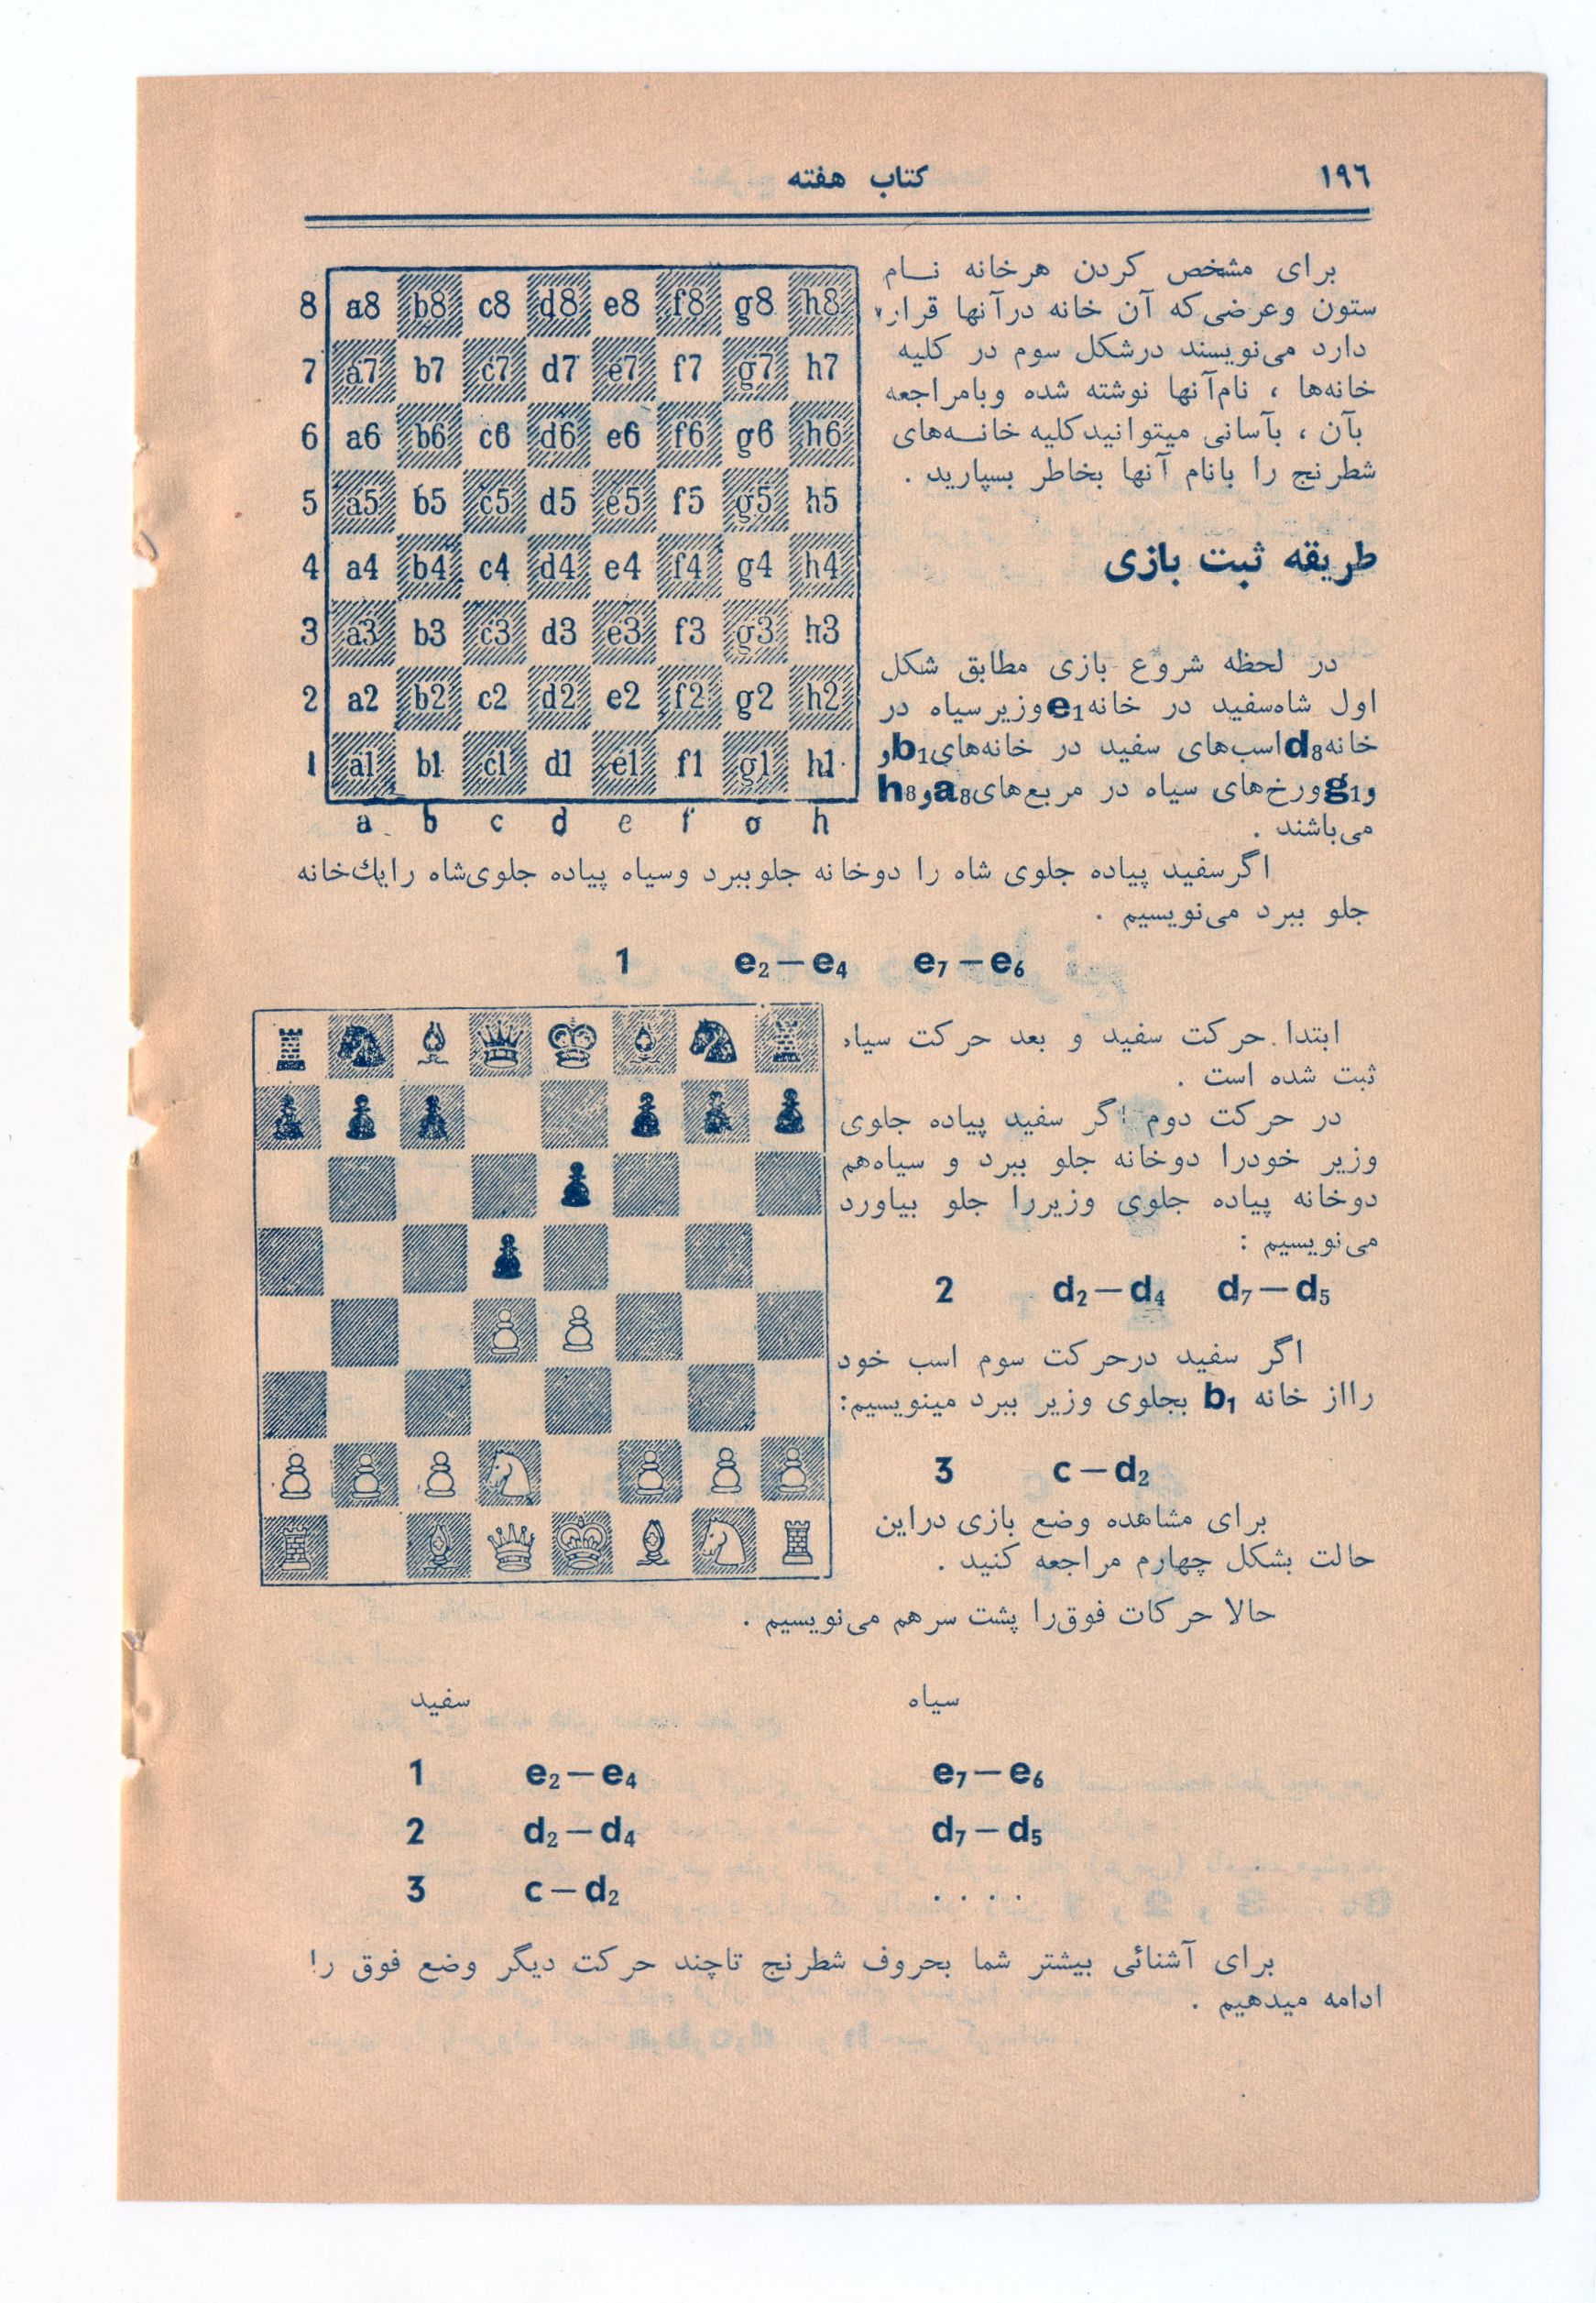 ۱۹۶
کتاب هفته
برای مشخص کردن هرخانه نـــام
ستون وعرضی‌که آن خانه درآنها قرار
دارد می‌نویسند درشکل سوم در کلیه
خانه‌ها ، نام‌آنها نوشته شده وبامراجعه
بآن ، بآسانی میتوانیدکلیه خانــه‌های
شطرنج را بانام آنها بخاطر بسپارید .
8 a8 b8 c8 d8 e8 f8 g8 h8
7 a7 b7 c7 d7 e7 f7 g7 h7
6 a6 b6 c6 d6 e6 f6 g6 h6
5 a5 b5 c5 d5 e5 f5 g5 h5
4 a4 b4 c4 d4 e4 f4 g4 h4
3 a3 b3 c3 d3 e3 f3 g3 h3
2 a2 b2 c2 d2 e2 f2 g2 h2
1 a1 b1 c1 d1 e1 f1 g1 h1
a b c d e f g h
طریقه ثبت بازی
در لحظه شروع بازی مطابق شکل
اول شاه‌سفید در خانه e₁ وزیرسیاه در
خانه d₈ اسب‌های سفید در خانه‌های b₁ و
و g₁ ورخ‌های سیاه در مربع‌های a₈ و h₈
می‌باشند .
اگرسفید پیاده جلوی شاه را دوخانه جلوببرد وسیاه پیاده جلوی‌شاه رایك‌خانه
جلو ببرد می‌نویسیم .
1 e₂—e₄ e₇—e₆
ابتدا حرکت سفید و بعد حرکت سیاه
ثبت شده است .
در حرکت دوم اگر سفید پیاده جلوی
وزیر خودرا دوخانه جلو ببرد و سیاه‌هم
دوخانه پیاده جلوی وزیررا جلو بیاورد
می‌نویسیم :
2 d₂—d₄ d₇—d₅
اگر سفید درحرکت سوم اسب خود
رااز خانه b₁ بجلوی وزیر ببرد مینویسیم:
3 c—d₂
برای مشاهده وضع بازی دراین
حالت بشکل چهارم مراجعه کنید .
حالا حرکات فوق‌را پشت سرهم می‌نویسیم .
سفید سیاه
1 e₂—e₄ e₇—e₆
2 d₂—d₄ d₇—d₅
3 c—d₂ . . . .
برای آشنائی بیشتر شما بحروف شطرنج تاچند حرکت دیگر وضع فوق را
ادامه میدهیم .